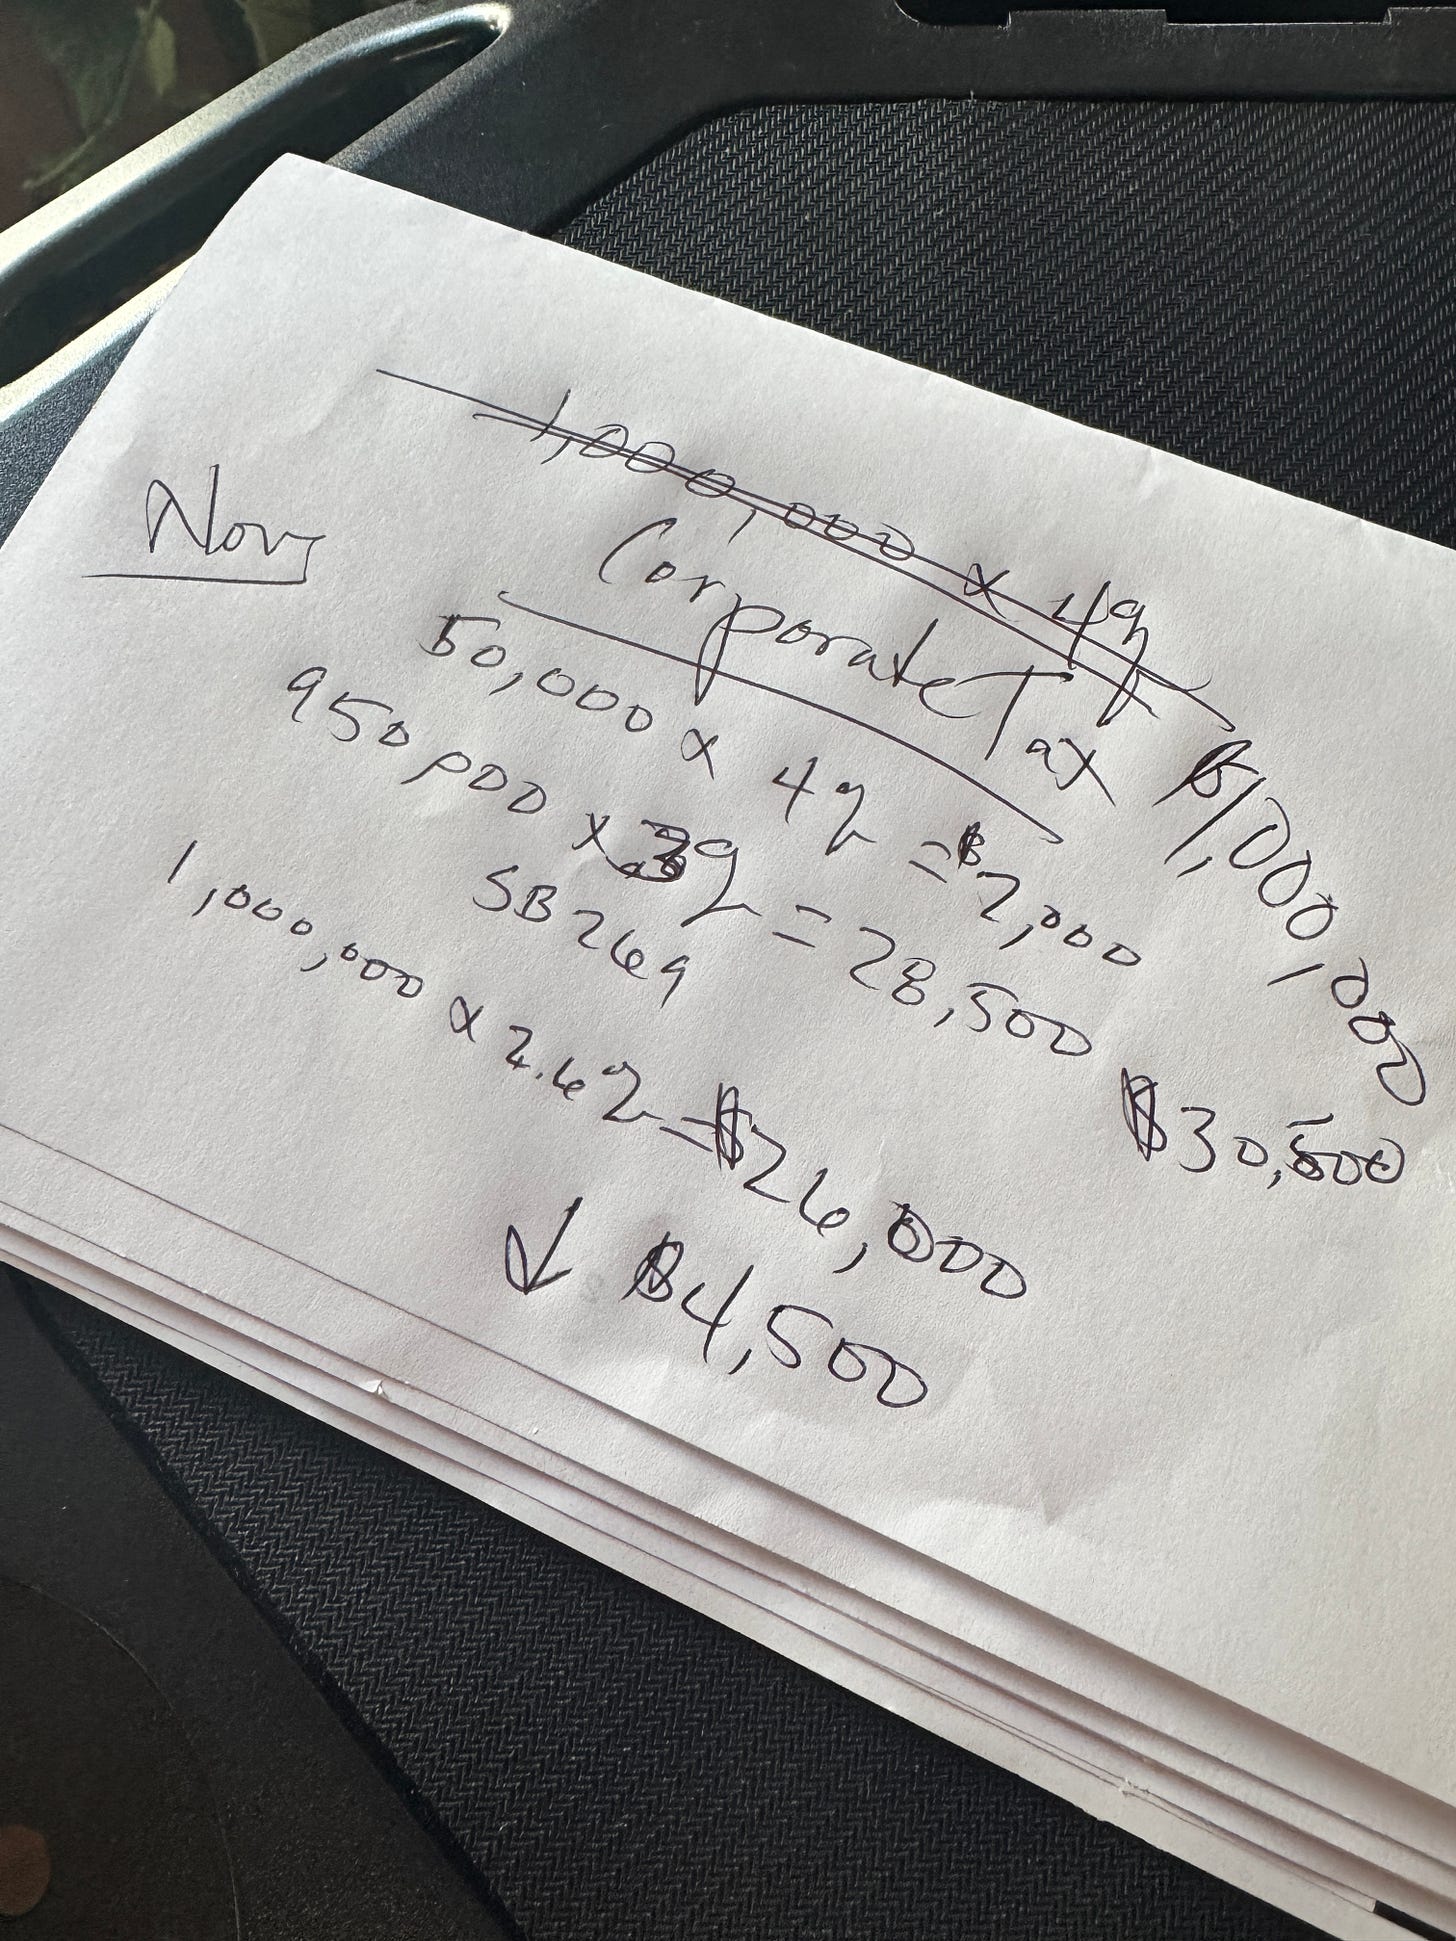 1,000,000 x 4%
Corporate Tax $1,000,000
Now
50,000 x 4% = $2,000
950,000 x 3% = 28,500
$30,500
SB269
1,000,000 x 2.6% = $26,000
↓ $4,500